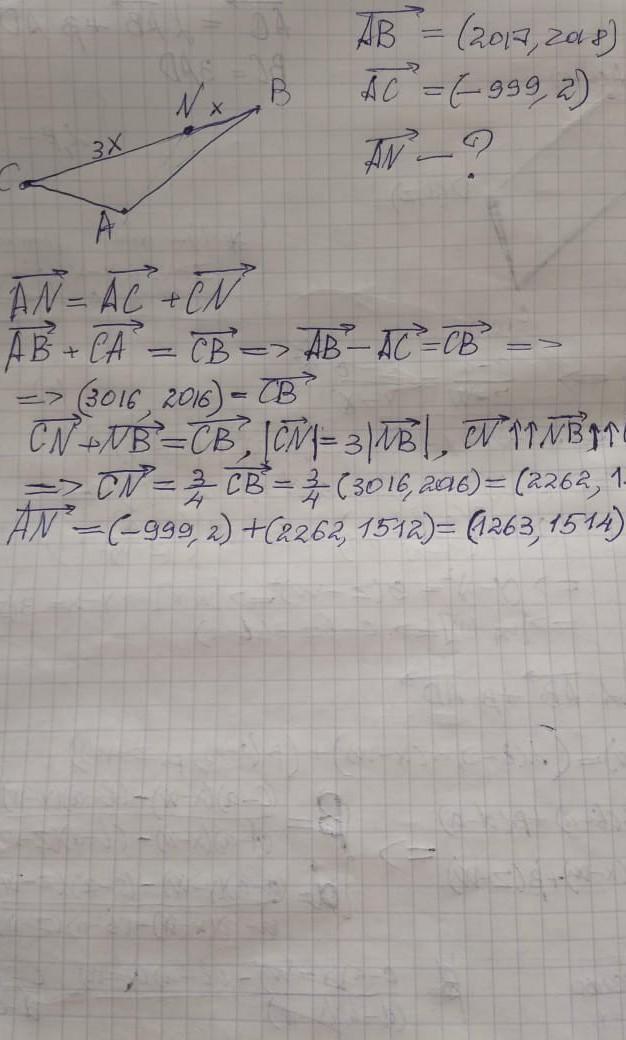 AB = (2017, 2018)
AC = (-999, 2)
AN — ?
N x B
3x
C
A
AN = AC + CN
AB + CA = CB => AB - AC = CB =>
=> (3016, 2016) = CB
CN + NB = CB, |CN| = 3|NB|, CN ↑↑ NB ↑↑
=> CN = 3/4 CB = 3/4 (3016, 2016) = (2262, 1
AN = (-999, 2) + (2262, 1512) = (1263, 1514)